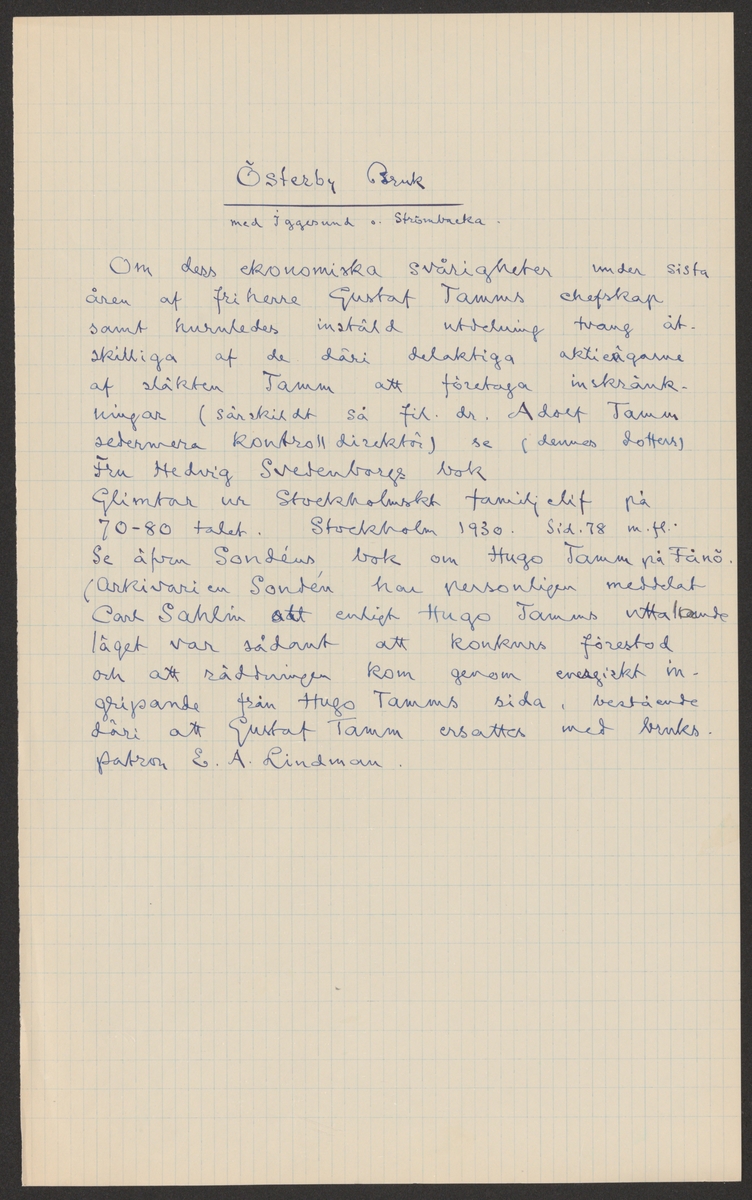 Österby Bruk
med Iggesund o. Strömbacka.
Om dess ekonomiska svårigheter under sista
åren af friherre Gustaf Tamms chefskap
samt huruledes inställd utdelning tvang åt-
skilliga af de däri delaktiga aktieägarne
af släkten Tamm att företaga inskränk-
ningar (särskildt så fil. dr. Adolf Tamm
sedermera kontrolldirektör) se (dennes dotters)
Fru Hedvig Svedenborgs bok
Glimtar ur Stockholmskt familjelif på
70-80 talet. Stockholm 1930. Sid. 78 m. fl.
Se äfven Sondéns bok om Hugo Tamm på Fånö.
(Arkivarien Sondén har personligen meddelat
Carl Sahlin att enligt Hugo Tamms uttalande
läget var sådant att konkurs förestod
och att räddningen kom genom energiskt in-
gripande från Hugo Tamms sida, bestående
däri att Gustaf Tamm ersattes med bruks-
patron E. A. Lindman.